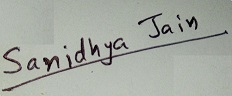 Sanidhya Jain